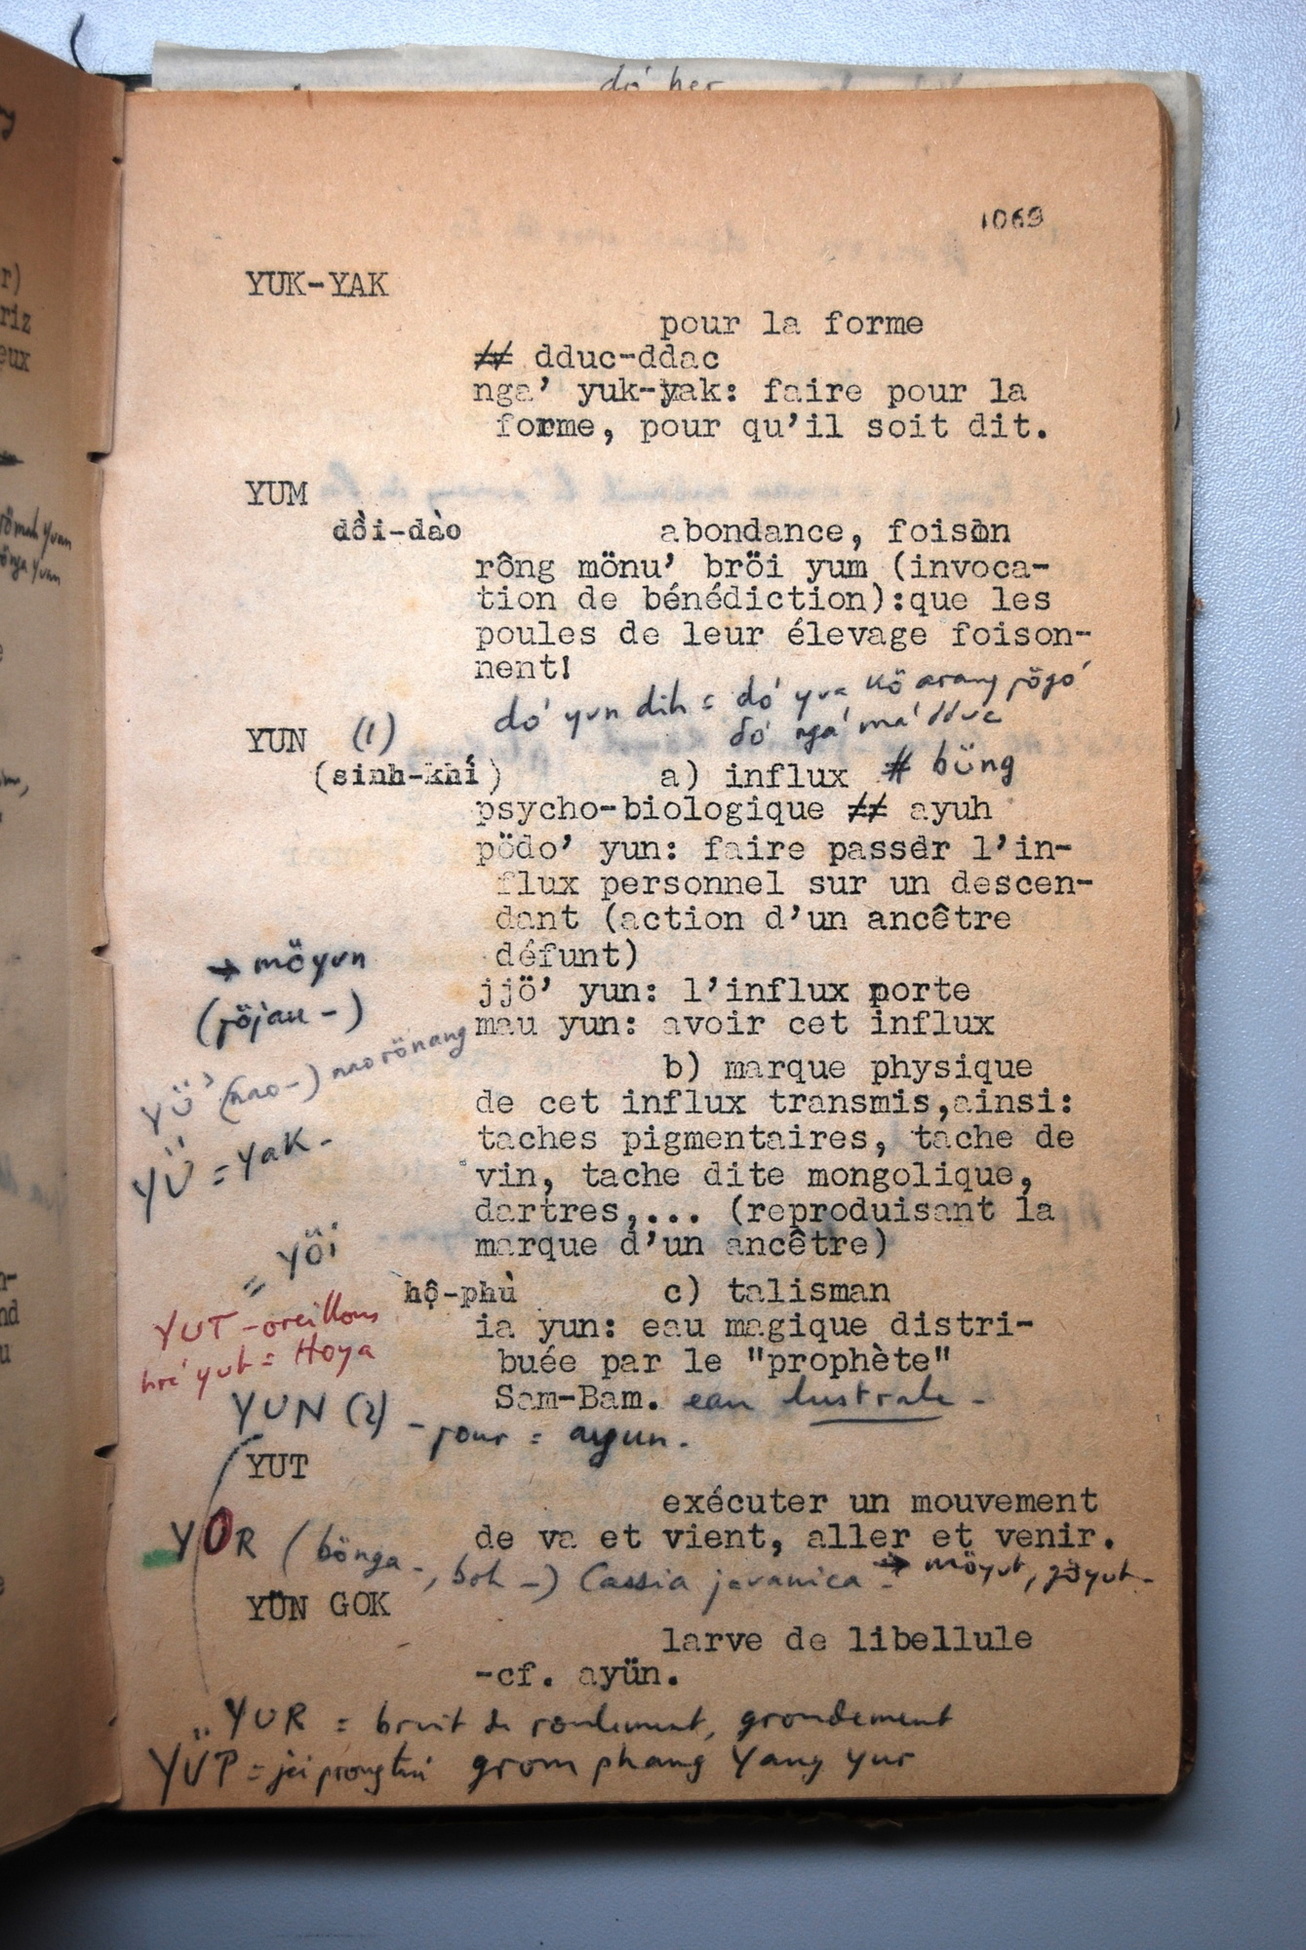 1069
YUK-YAK
pour la forme
≠ dduc-ddac
nga' yuk-yak: faire pour la
forme, pour qu'il soit dit.
YUM
dồi-dào abondance, foison
rông mönu' bröi yum (invoca-
tion de bénédiction):que les
poules de leur élevage foison-
nent!
YUN (1)
(sinh-khí) a) influx # büng
psycho-biologique ≠ ayuh
pödo' yun: faire passer l'in-
flux personnel sur un descen-
dant (action d'un ancêtre
défunt)
→ möyun
jjö' yun: l'influx porte
mau yun: avoir cet influx
b) marque physique
de cet influx transmis,ainsi:
taches pigmentaires, tache de
= yak-
vin, tache dite mongolique,
dartres,... (reproduisant la
marque d'un ancêtre)
= yöi
hộ-phù c) talisman
YUT - oreillons
ia yun: eau magique distri-
= Hoya
buée par le "prophète"
Sam-Bam. eau lustrale -
YUN (2) - pour = ayun.
YUT
exécuter un mouvement
de va et vient, aller et venir.
YOR (bönga -, boh -) Cassia javanica → möyut,
YÜN GOK
larve de libellule
-cf. ayün.
YUR = bruit de roulement, grondement
YÜP = grom phang Yang yur